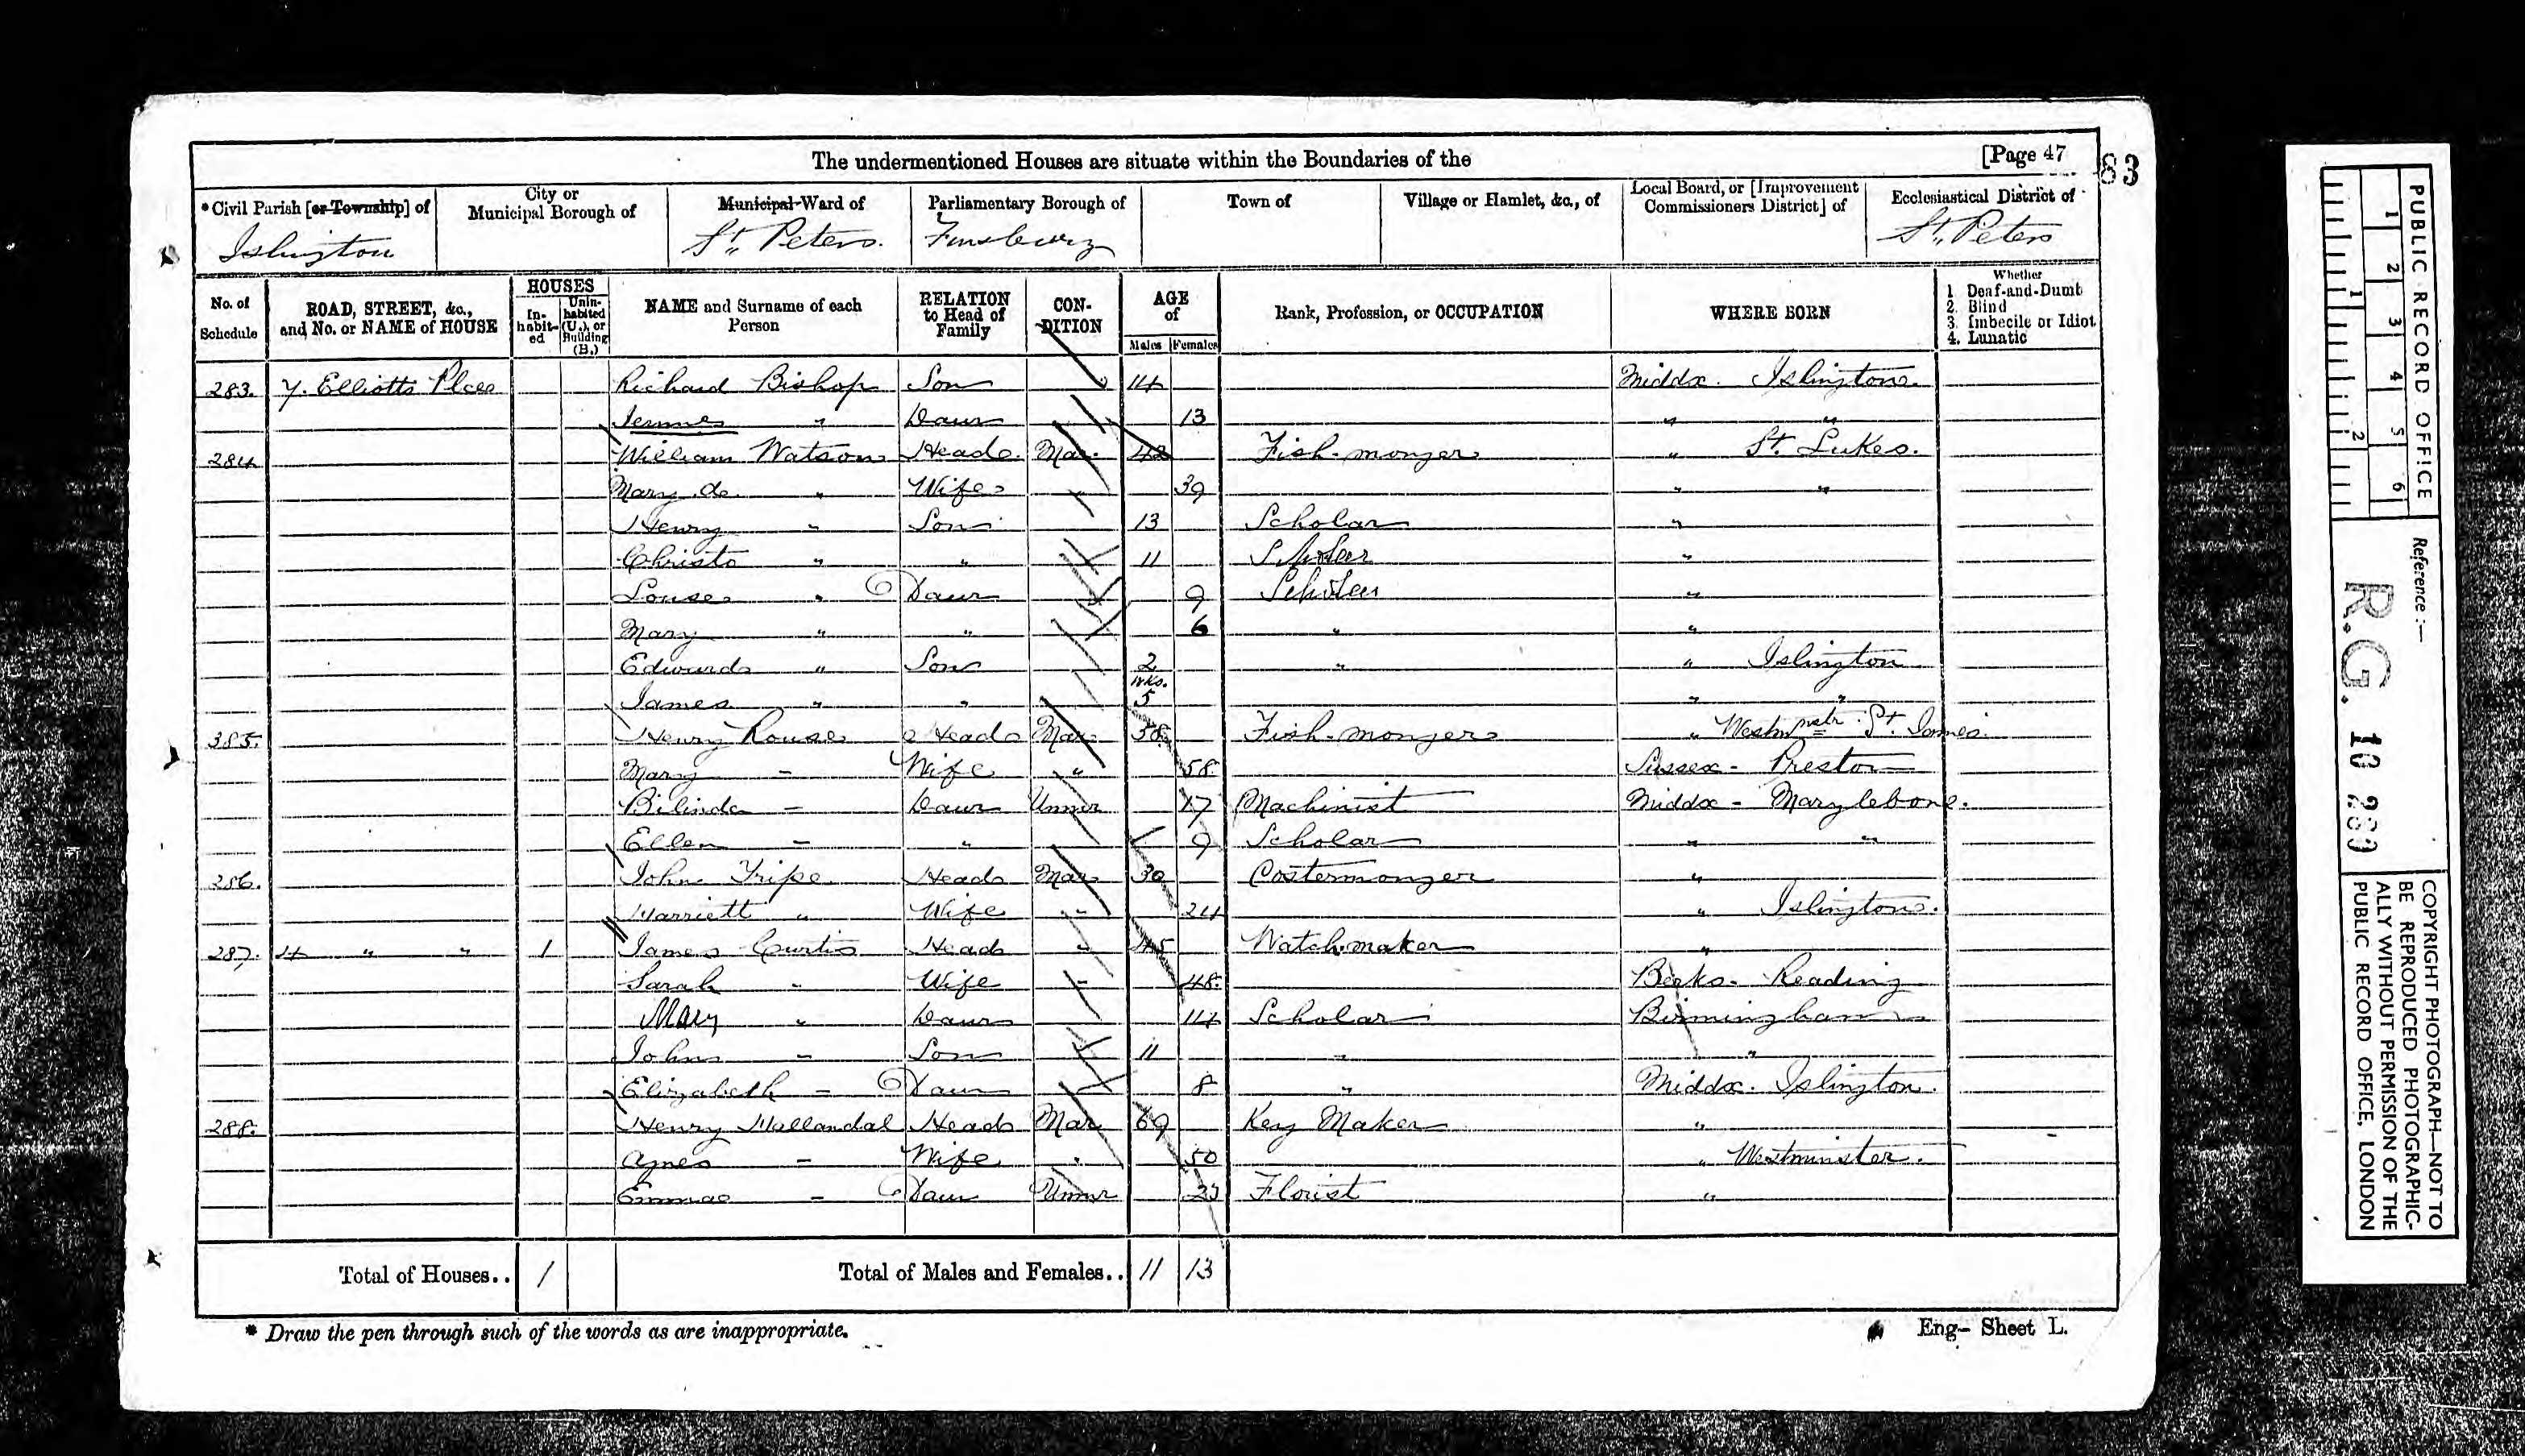 The undermentioned Houses are situate within the Boundaries of the [Page 47
83
*Civil Parish [or Township] of City or Municipal Borough of Municipal Ward of Parliamentary Borough of Town of Village or Hamlet, &c., of Local Board, or [Improvement Commissioners District] of Ecclesiastical District of
Islington St. Peters. Finsbury St. Peters
No. of Schedule ROAD, STREET, &c., and No. or NAME of HOUSE HOUSES In-habit-ed Unin-habited (U.), or Building (B.) NAME and Surname of each Person RELATION to Head of Family CON-DITION AGE of Males Females Rank, Profession, or OCCUPATION WHERE BORN Whether 1 Deaf-and-Dumb 2. Blind 3. Imbecile or Idiot 4. Lunatic
283. 7. Elliotts Place Richard Bishop Son 14 Middx. Islington
" Daur 13 " "
284 William Watson Head Mar. 42 Fish-monger " St. Lukes.
Mary " Wife " 39 " "
Henry " Son 13 Scholar "
Christo " " 11 Scholar "
Louisa " Daur 9 Scholar "
Mary " " 6 " "
Edward " Son 2 " " Islington
James " " wks. 5 " "
385. Henry Rouse Head Mar 58 Fish-monger " Westmnstr St. James
Mary - Wife " 58 Sussex - Preston
Bilinda - Daur Unmr 17 Machinist Middx - Marylebone.
Ellen - " 9 Scholar " "
286. John Tripe Head Mar 30 Costermonger "
Harriett " Wife " 24 " Islington.
287. 4 " " 1 James Curtis Head " 45 Watch-maker "
Sarah " Wife " 48 Berks. Reading
Mary " Daur 14 Scholar Birmingham
John " Son 11 " "
Elizabeth - Daur 8 " Middx. Islington.
288. Henry Head Mar 69 Key Maker "
Agnes - Wife " 50 " Westminster.
Emma - Daur Unmr Florist "
Total of Houses.. 1 Total of Males and Females.. 11 13
* Draw the pen through such of the words as are inappropriate.
Eng- Sheet L.
PUBLIC RECORD OFFICE
1 2 3 4 5 6
1 2
Reference :-
R.G. 10
COPYRIGHT PHOTOGRAPH—NOT TO
BE REPRODUCED PHOTOGRAPHIC-
ALLY WITHOUT PERMISSION OF THE
PUBLIC RECORD OFFICE, LONDON